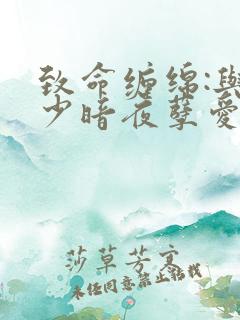 致命缠绵:與
少暗夜孽愛
莎草芳
未经同意禁止转载